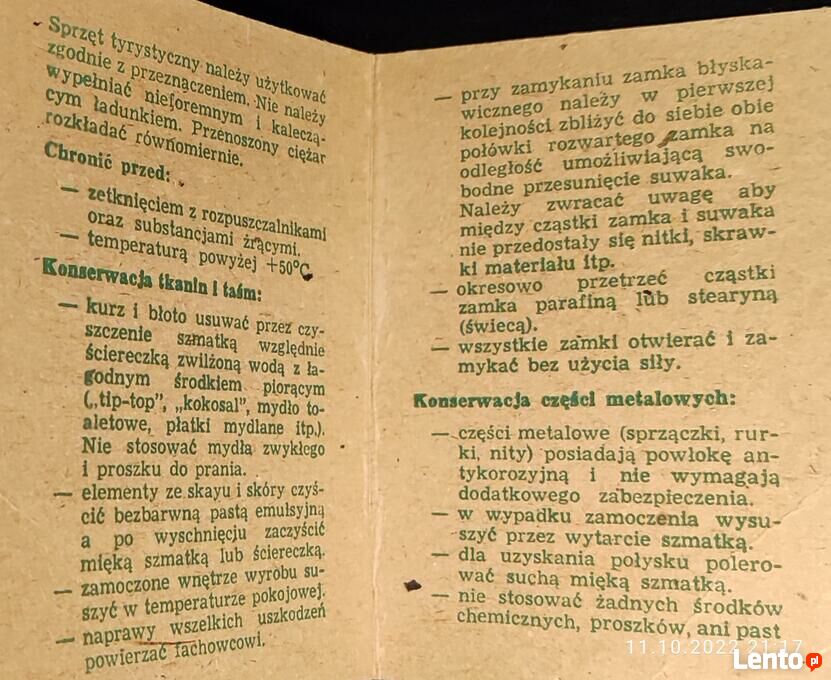 Sprzęt tyrystyczny należy użytkować
zgodnie z przeznaczeniem. Nie należy
wypełniać nieforemnym i kalecżą-
cym ładunkiem. Przenoszony ciężar
rozkładać równomiernie.
Chronić przed:
— zetknięciem z rozpuszczalnikami
oraz substancjami żrącymi.
— temperaturą powyżej +50°C
Konserwacja tkanin i taśm:
— kurz i błoto usuwać przez czy-
szczenie szmatką względnie
ściereczką zwilżoną wodą z ła-
godnym środkiem piorącym
(„tip-top”, „kokosal”, mydło to-
aletowe, płatki mydlane itp.).
Nie stosować mydła zwykłego
i proszku do prania.
— elementy ze skayu i skóry czyś-
cić bezbarwną pastą emulsyjną
a po wyschnięciu zaczyścić
mięką szmatką lub ściereczką.
— zamoczone wnętrze wyrobu su-
szyć w temperaturze pokojowej.
— naprawy wszelkich uszkodzeń
powierzać fachowcowi.
— przy zamykaniu zamka błyska-
wicznego należy w pierwszej
kolejności zbliżyć do siebie obie
połówki rozwartego zamka na
odległość umożliwiającą swo-
bodne przesunięcie suwaka.
Należy zwracać uwagę aby
między cząstki zamka i suwaka
nie przedostały się nitki, skraw-
ki materiału itp.
— okresowo przetrzeć cząstki
zamka parafiną lub stearyną
(świecą).
— wszystkie zamki otwierać i za-
mykać bez użycia siły.
Konserwacja części metalowych:
— części metalowe (sprzączki, rur-
ki, nity) posiadają powłokę an-
tykorozyjną i nie wymagają
dodatkowego zabezpieczenia.
— w wypadku zamoczenia wysu-
szyć przez wytarcie szmatką.
— dla uzyskania połysku polero-
wać suchą mięką szmatką.
— nie stosować żadnych środków
chemicznych, proszków, ani past
11.10.2022 21:17
Lento.pl